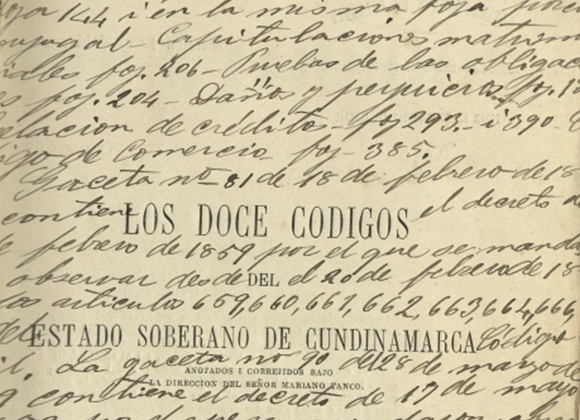 foja 144 i en la misma foja
conyugal - Capitulaciones matrimo
niales foj. 206 - Pruebas de las obligac
foj. 204 - Daños y perjuicios foj.
elacion de crédito - foj 293. - i 390 -
igo de Comercio foj - 385.
Gaceta nº 81 de 18 de febrero de 18
contiene el decreto de
LOS DOCE CODIGOS
febrero de 1859 por el que se manda
observar desde el 20 de febrero de 18
DEL
los articulos 659, 660, 661, 662, 663, 664, 666,
ESTADO SOBERANO DE CUNDINAMARCA
del Código
il. La gaceta no 90 del 28 de marzo de
ANOTADOS I CORREJIDOS BAJO
LA DIRECCION DEL SEÑOR MARIANO TANCO.
contiene el decreto de 17 de marzo
por el que se